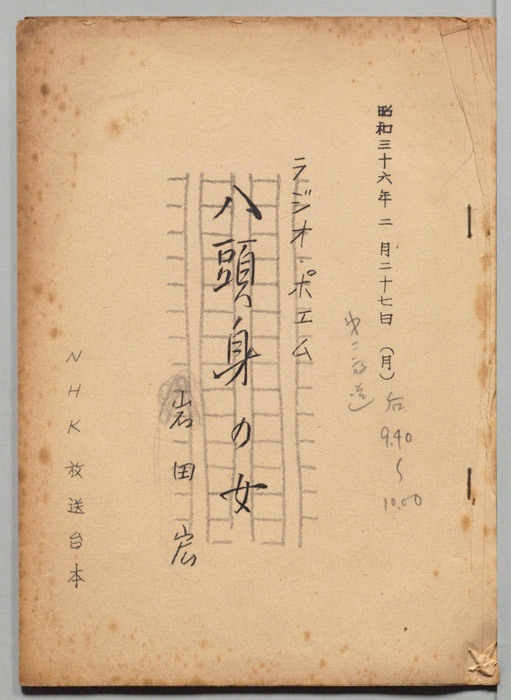 昭和三十六年二月二十七日(月)后9.40〜10.00
第二放送
ラジオ・ポエム
八頭身の女
岩田宏
NHK放送台本